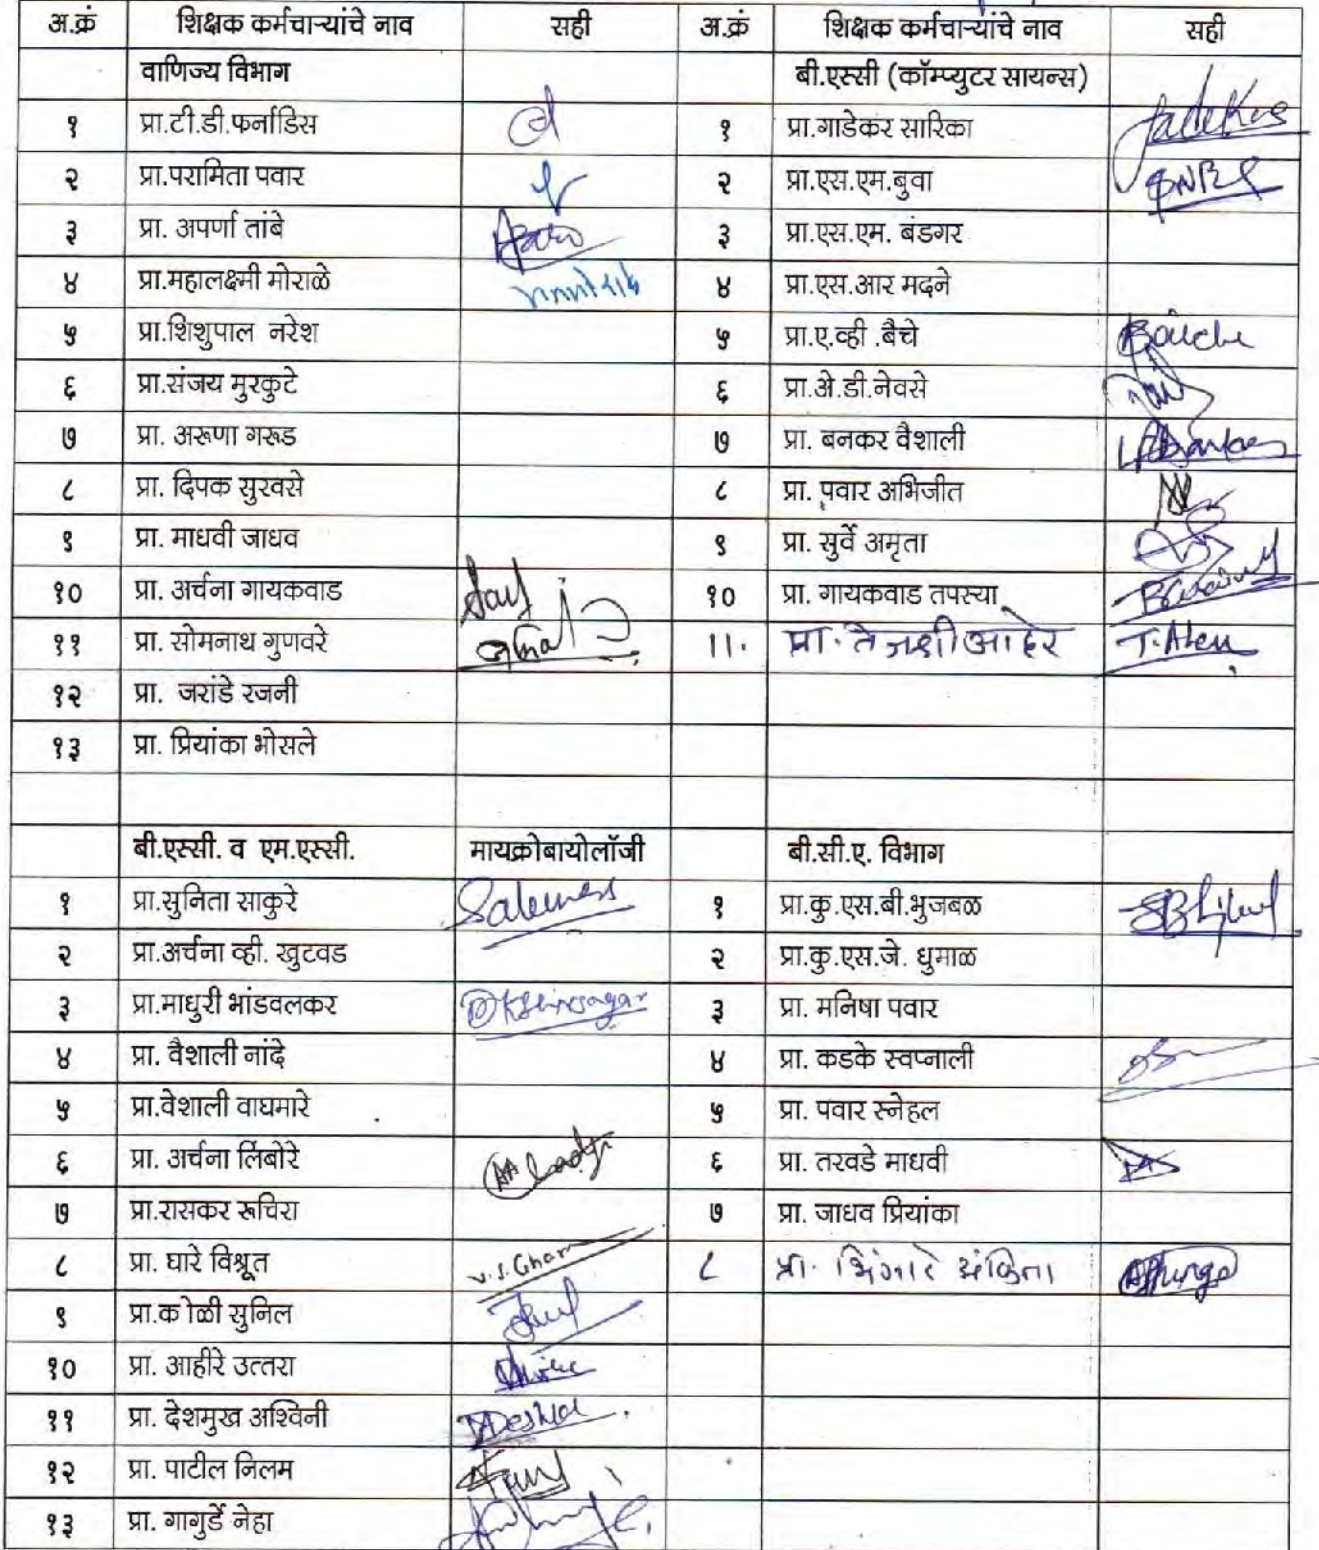 अ.क्रं शिक्षक कर्मचाऱ्यांचे नाव सही अ.क्रं शिक्षक कर्मचाऱ्यांचे नाव सही
वाणिज्य विभाग बी.एस्सी (कॉम्प्युटर सायन्स)
१ प्रा.टी.डी.फर्नाडिस १ प्रा.गाडेकर सारिका
२ प्रा.परामिता पवार २ प्रा.एस.एम.बुवा
३ प्रा. अपर्णा तांबे ३ प्रा.एस.एम. बंडगर
४ प्रा.महालक्ष्मी मोराळे ४ प्रा.एस.आर मदने
५ प्रा.शिशुपाल नरेश ५ प्रा.ए.व्ही .बैचे Baiche
६ प्रा.संजय मुरकुटे ६ प्रा.अे.डी.नेवसे
७ प्रा. अरूणा गरूड ७ प्रा. बनकर वैशाली
८ प्रा. दिपक सुरवसे ८ प्रा. पवार अभिजीत
९ प्रा. माधवी जाधव ९ प्रा. सुर्वे अमृता
१० प्रा. अर्चना गायकवाड १० प्रा. गायकवाड तपस्या
११ प्रा. सोमनाथ गुणवरे 11. प्रा. तेजश्री आहेर T.Aher
१२ प्रा. जरांडे रजनी
१३ प्रा. प्रियांका भोसले
बी.एस्सी. व एम.एस्सी. मायक्रोबायोलॉजी बी.सी.ए. विभाग
१ प्रा.सुनिता साकुरे १ प्रा.कु.एस.बी.भुजबळ
२ प्रा.अर्चना व्ही. खुटवड २ प्रा.कु.एस.जे. धुमाळ
३ प्रा.माधुरी भांडवलकर ३ प्रा. मनिषा पवार
४ प्रा. वैशाली नांदे ४ प्रा. कडके स्वप्नाली
५ प्रा.वेशाली वाघमारे ५ प्रा. पवार स्नेहल
६ प्रा. अर्चना लिंबोरे ६ प्रा. तरवडे माधवी
७ प्रा.रासकर रूचिरा ७ प्रा. जाधव प्रियांका
८ प्रा. घारे विश्रूत ८ प्रा.
९ प्रा.कोळी सुनिल
१० प्रा. आहीरे उत्तरा
११ प्रा. देशमुख अश्विनी
१२ प्रा. पाटील निलम
१३ प्रा. गागुर्डे नेहा